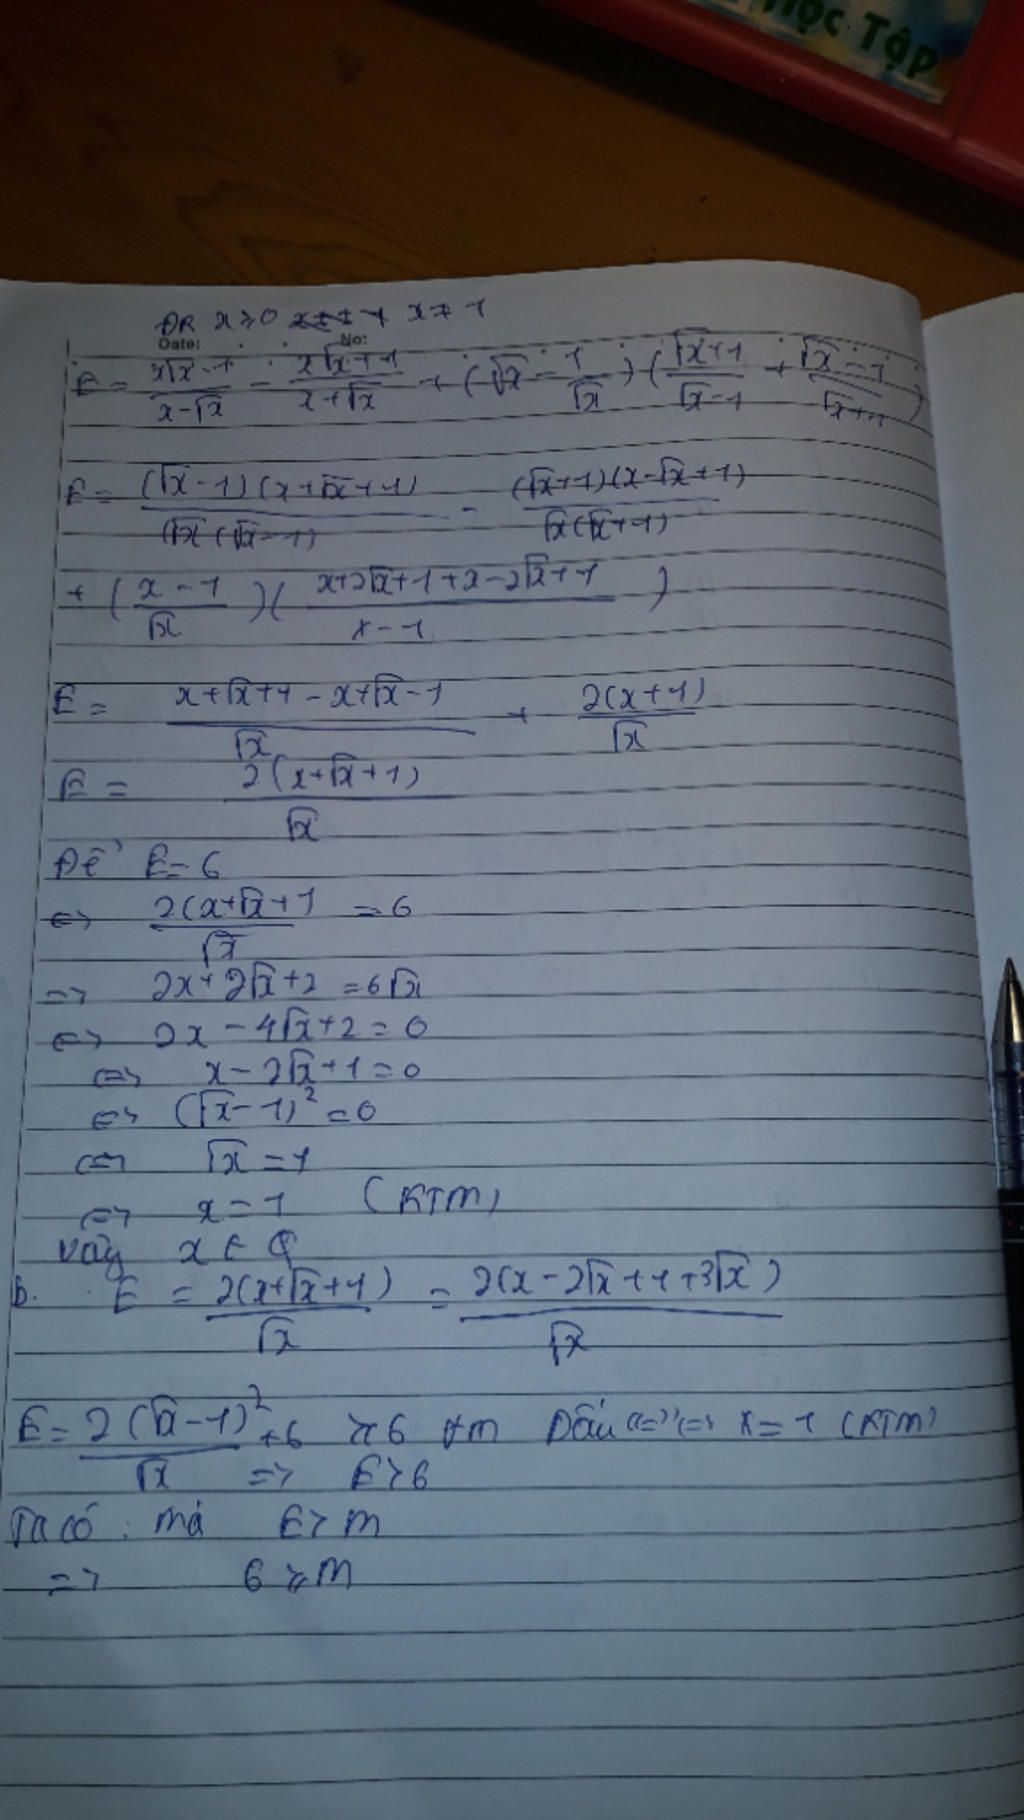 Học Tập
ĐK x ≥ 0 x ≠ 1
Date: No:
E = x√x - 1 / x - √x - x√x + 1 / x + √x + (√x - 1/√x)(√x + 1 / √x - 1 + √x - 1 / √x + 1)
E = (√x - 1)(x + √x + 1) / √x(√x - 1) - (√x + 1)(x - √x + 1) / √x(√x + 1)
+ (x - 1 / √x)(x + 2√x + 1 + x - 2√x + 1 / x - 1)
E = x + √x + 1 - x + √x - 1 / √x + 2(x + 1) / √x
E = 2(x + √x + 1) / √x
Để E = 6
<=> 2(x + √x + 1 / √x = 6
=> 2x + 2√x + 2 = 6√x
<=> 2x - 4√x + 2 = 0
<=> x - 2√x + 1 = 0
<=> (√x - 1)² = 0
<=> √x = 1
<=> x = 1 (KTM)
Vậy x ∈ φ
b. E = 2(x + √x + 1) / √x = 2(x - 2√x + 1 + 3√x) / √x
E = 2(√x - 1)² / √x + 6 ≥ 6 Dấu "=" <=> x = 1 (KTM)
=> E > 6
Ta có : mà E > m
=> 6 ≥ m